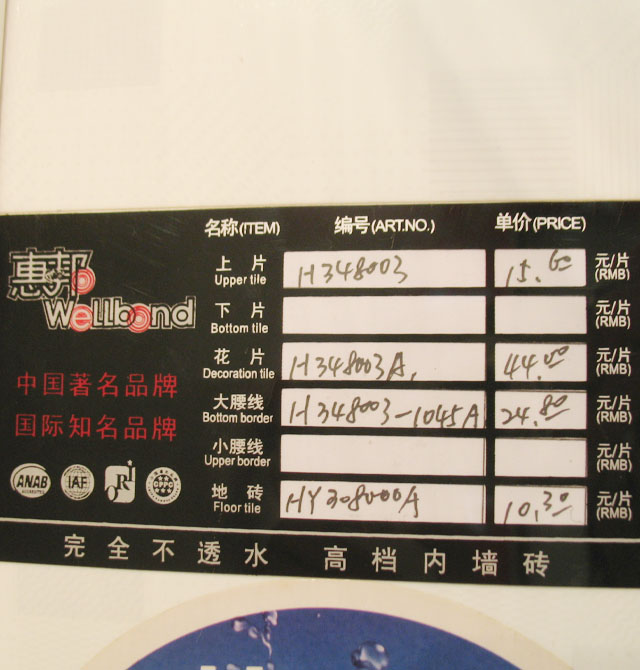 名称(ITEM) 编号(ART.NO.) 单价(PRICE)
惠邦
Wellbond
中国著名品牌
国际知名品牌
ANAB IAF ORI CPPC
上片 Upper tile H348003 15.60 元/片 (RMB)
下片 Bottom tile 元/片 (RMB)
花片 Decoration tile H348003A. 44.00 元/片 (RMB)
大腰线 Bottom border H348003-1045A 24.80 元/片 (RMB)
小腰线 Upper border 元/片 (RMB)
地砖 Floor tile HY308000A 10.30 元/片 (RMB)
完全不透水 高档内墙砖